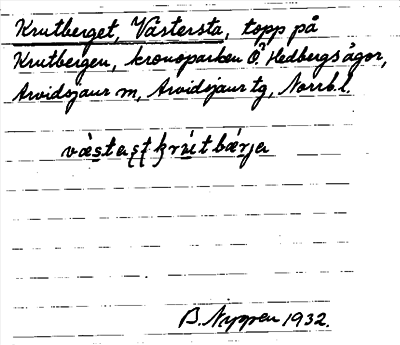 Krutberget, Västersta, topp på
Krutbergen, kronoparken Ö. Hedbergs ägor,
Arvidsjaur m, Arvidsjaur tg, Norrb. l.
B. Nygren 1932.